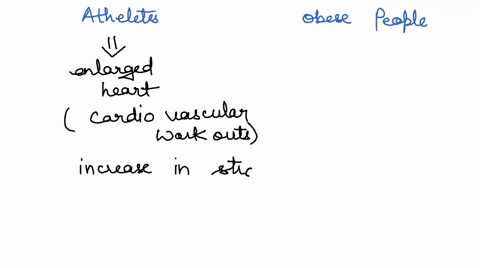 Atheletes
obese People
enlarged
heart
( cardio vascular
work outs)
increase in